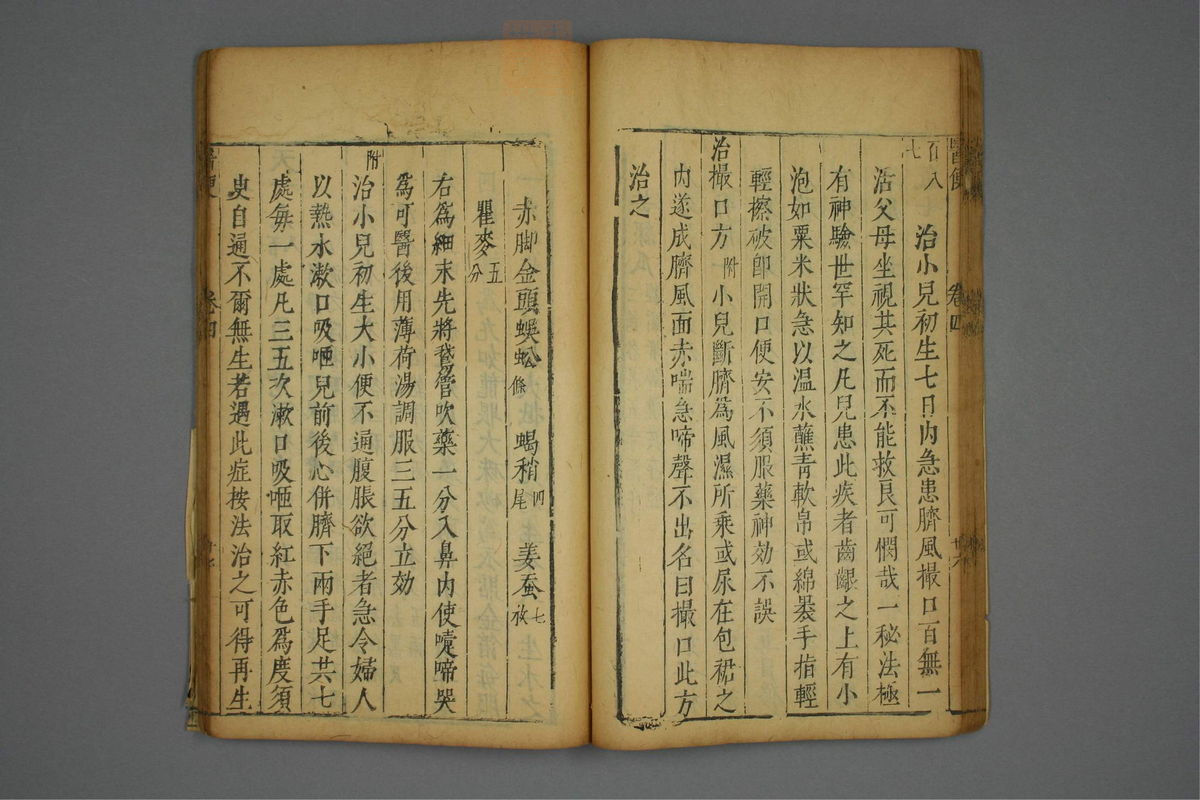 醫便 卷四 廿六
百八七 治小兒初生七日內急患臍風撮口百無一
活父母坐視其死而不能救良可憫哉一秘法極
有神驗世罕知之凡兒患此疾者齒齦之上有小
泡如粟米狀急以温水蘸青軟帛或綿裹手指輕
輕擦破即開口便安不須服藥神効不誤
治撮口方 附 小兒斷臍爲風濕所乘或尿在包裙之
內遂成臍風面赤喘急啼聲不出名曰撮口此方
治之
赤脚金頭蜈蚣一條 蝎稍四尾 姜蚕七枚
瞿麥五分
右爲細末先將鵞管吹藥一分入鼻內使嚏啼哭
爲可醫後用薄荷湯調服三五分立効
附 治小兒初生大小便不通腹脹欲絕者急令婦人
以熱水漱口吸咂兒前後心併臍下兩手足共七
處每一處凡三五次漱口吸咂取紅赤色爲度須
臾自通不爾無生若遇此症按法治之可得再生
醫便 卷四 廿七